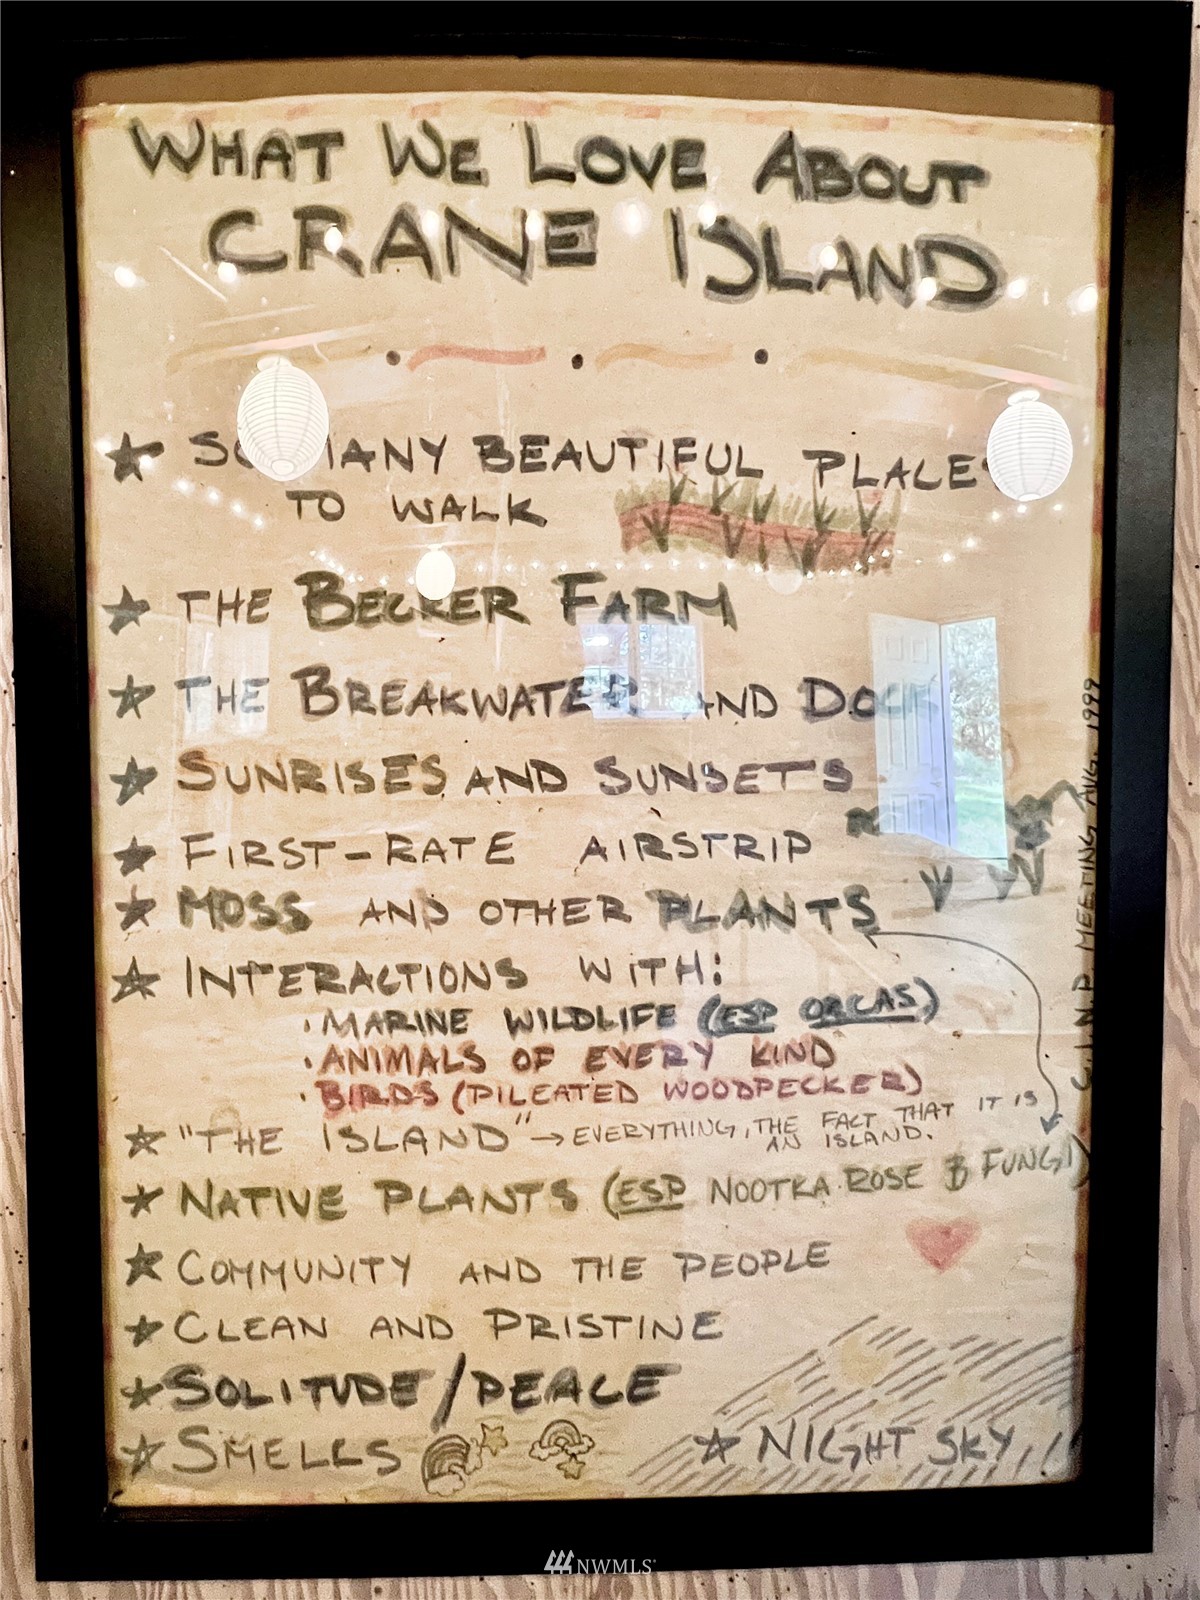 WHAT WE LOVE ABOUT
CRANE ISLAND
SO MANY BEAUTIFUL PLACES
TO WALK
THE BECKER FARM
THE BREAKWATER AND DOCK
SUNRISES AND SUNSETS
FIRST-RATE AIRSTRIP
MOSS AND OTHER PLANTS
INTERACTIONS WITH:
· MARINE WILDLIFE (ESP ORCAS)
· ANIMALS OF EVERY KIND
· BIRDS (PILEATED WOODPECKER)
"THE ISLAND" → EVERYTHING, THE FACT THAT IT IS
AN ISLAND.
NATIVE PLANTS (ESP NOOTKA ROSE & FUNGI)
COMMUNITY AND THE PEOPLE
CLEAN AND PRISTINE
SOLITUDE/PEACE
SMELLS
NIGHT SKY
C.I.N.P. MEETING AUG. 1999
NWMLS